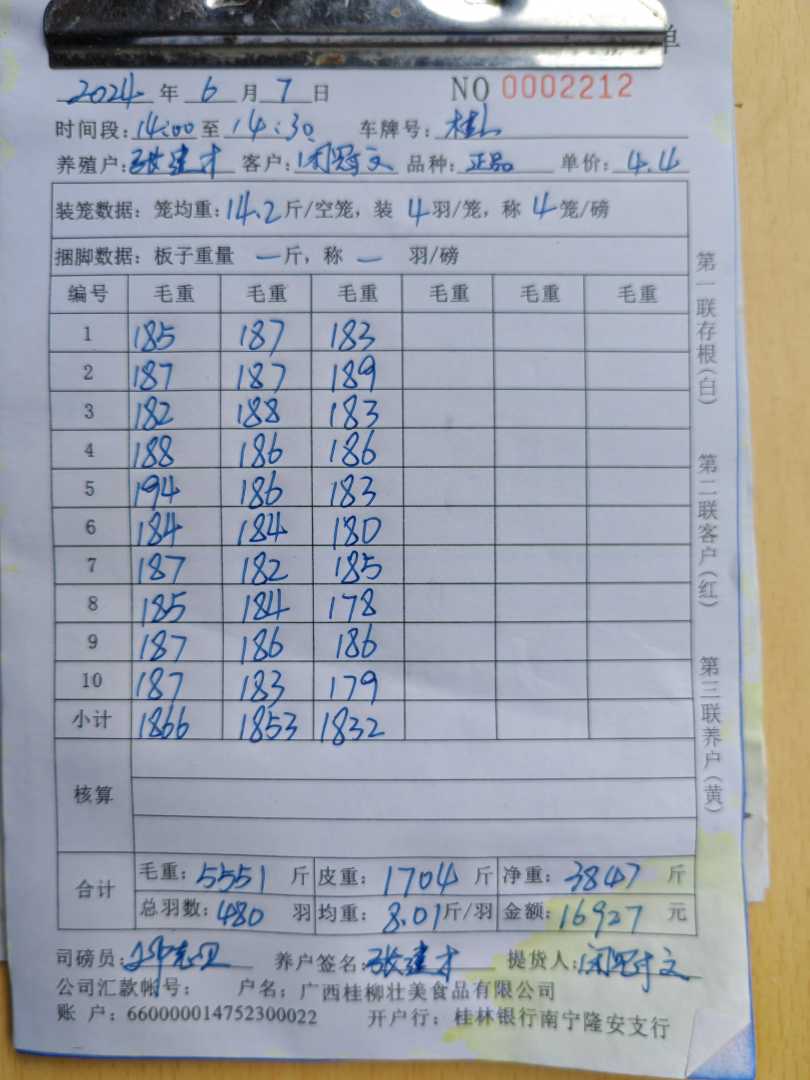 单
2024年6月7日 NO 0002212
时间段:14:00至14:30 车牌号:桂
养殖户:张建才 客户:闭冠文 品种:正品 单价:4.4
装笼数据:笼均重:14.2斤/空笼,装4羽/笼,称4笼/磅
捆脚数据:板子重量一斤,称一羽/磅
编号 毛重 毛重 毛重 毛重 毛重 毛重
1 185 187 183
2 187 187 189
3 182 188 183
4 188 186 186
5 194 186 183
6 184 184 180
7 187 182 185
8 185 184 178
9 187 186 186
10 187 183 179
小计 1866 1853 1832
核算
合计 毛重:5551斤 皮重:1704斤 净重:3847斤
总羽数:480羽 均重:8.01斤/羽 金额:16927元
司磅员: 养户签名:张建才 提货人:闭冠文
公司汇款帐号: 户名:广西桂柳壮美食品有限公司
账 户:660000014752300022 开户行:桂林银行南宁隆安支行
第一联存根(白) 第二联客户(红) 第三联养户(黄)